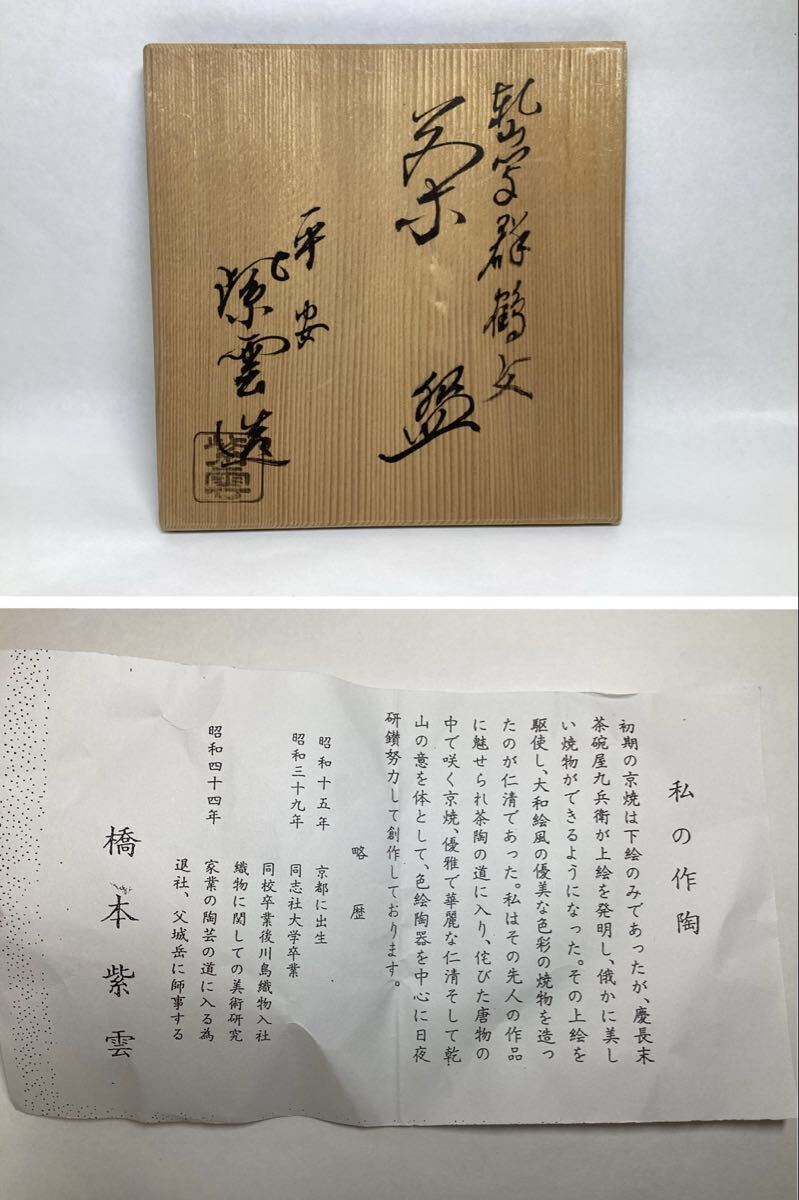 乾山写群鶴文
茶盌
平安
紫雲造
紫雲
私の作陶
初期の京焼は下絵のみであったが、慶長末
茶碗屋九兵衛が上絵を発明し、俄かに美し
い焼物ができるようになった。その上絵を
駆使し、大和絵風の優美な色彩の焼物を造っ
たのが仁清であった。私はその先人の作品
に魅せられ茶陶の道に入り、侘びた唐物の
中で咲く京焼、優雅で華麗な仁清そして乾
山の意を体として、色絵陶器を中心に日夜
研鑽努力して創作しております。
略歴
昭和十五年 京都に出生
昭和三十九年 同志社大学卒業
同校卒業後川島織物入社
織物に関しての美術研究
昭和四十四年 家業の陶芸の道に入る為
退社、父城岳に師事する
橋本紫雲